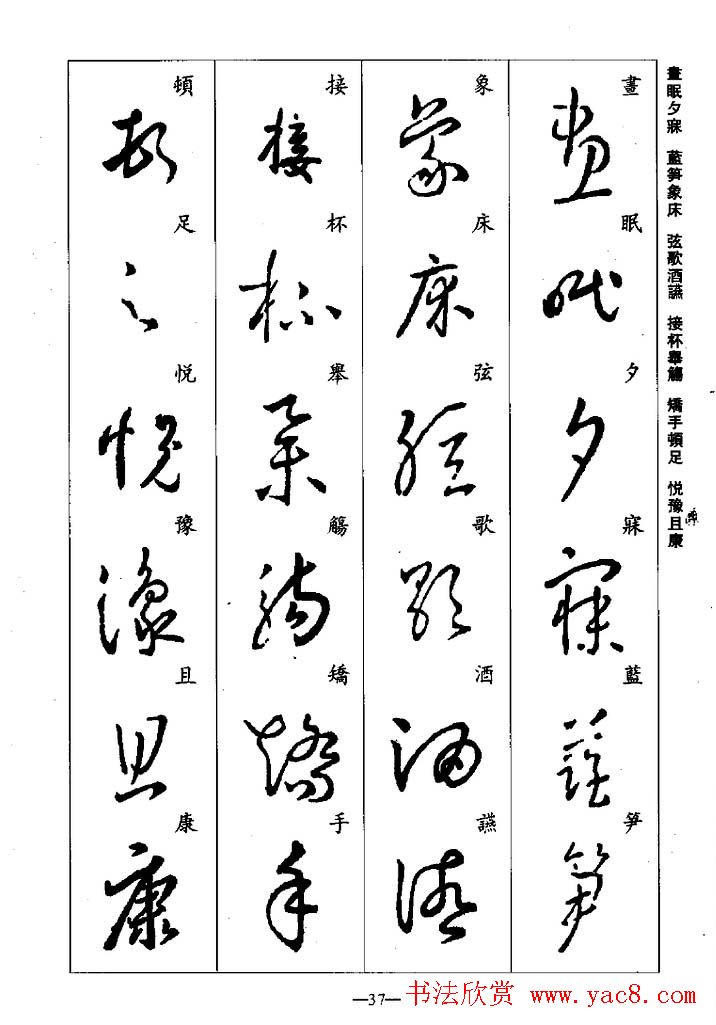 晝眠夕寐 藍笋象床 弦歌酒讌 接杯舉觴 矯手頓足 悦豫且康
晝眠夕寐藍笋
象床弦歌酒讌
接杯舉觴矯手
頓足悦豫且康
—37—
书法欣赏 www.yac8.com